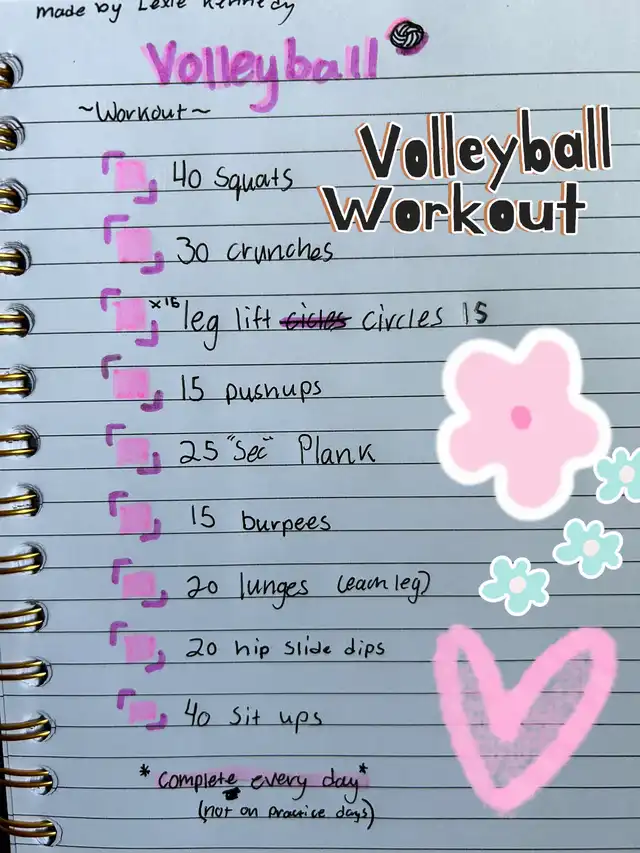 made by Lexie Kennedy
Volleyball
~Workout~
Volleyball
Workout
40 squats
30 crunches
x15 leg lift cicles circles 15
15 pushups
25 "Sec" Plank
15 burpees
20 lunges (each leg)
20 hip slide dips
40 sit ups
*complete every day*
(not on practice days)